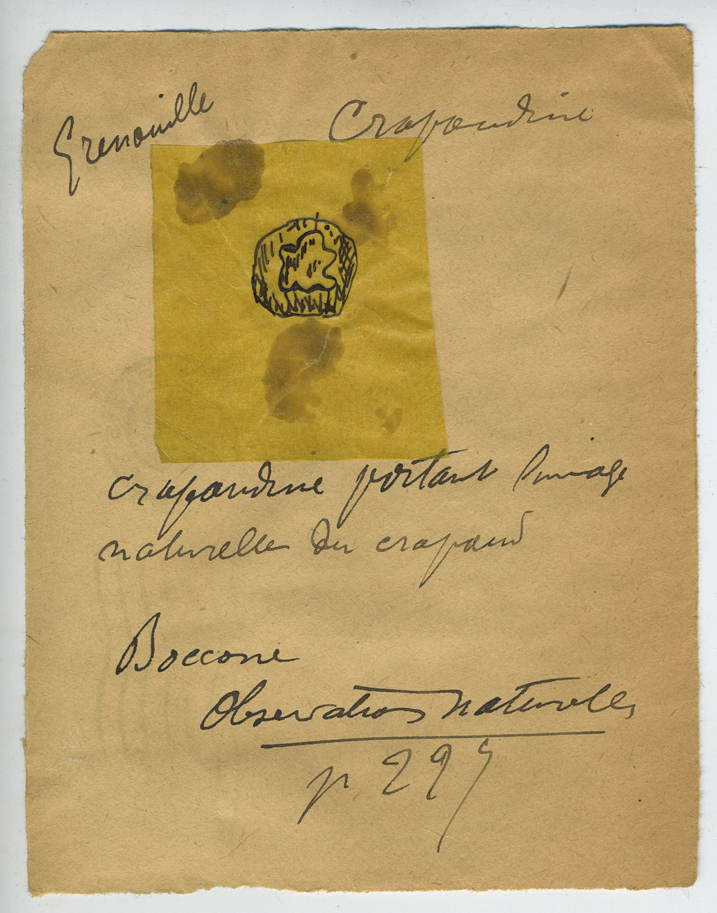 Grenouille
Crapaudine
crapaudine portant l'image
naturelle du crapaud
Boccone
Observations naturelles
p 295